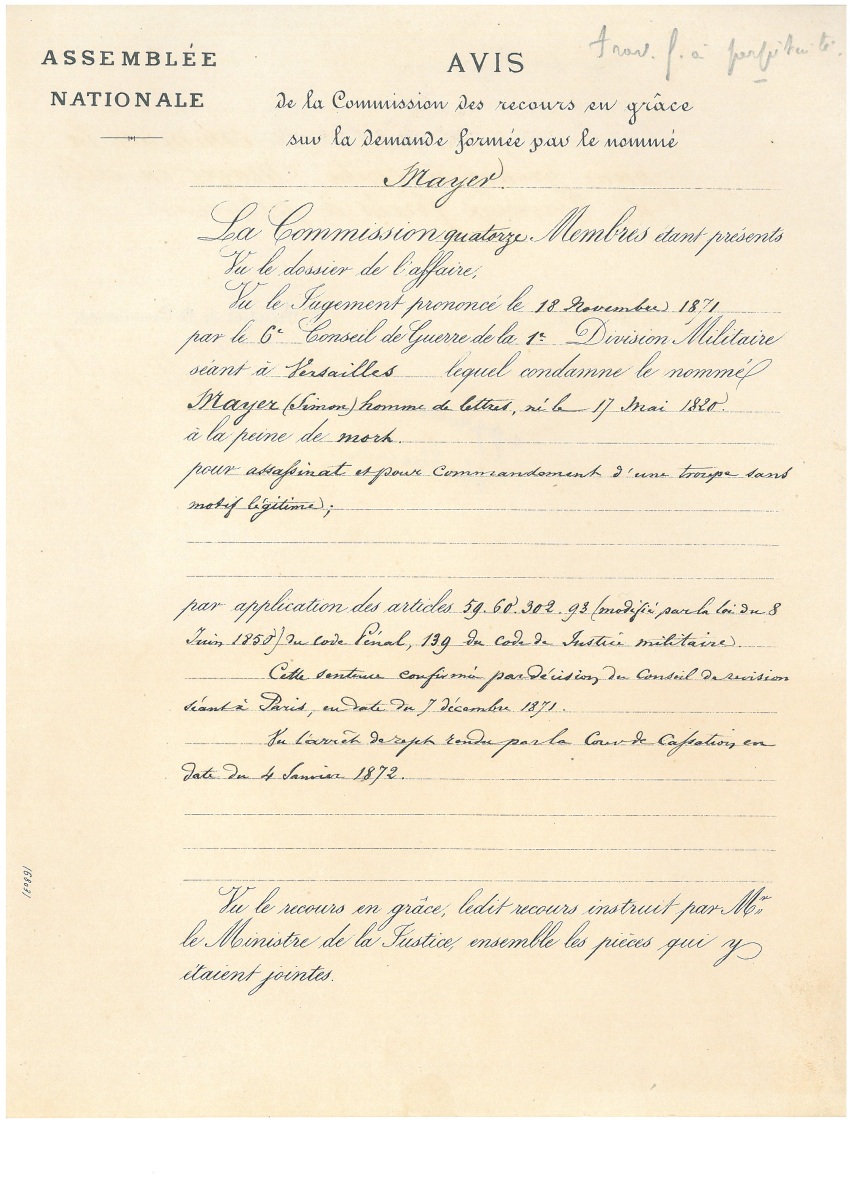 Trav. f. à perpétuité.
ASSEMBLÉE
NATIONALE
AVIS
de la Commission des recours en grâce
sur la demande formée par le nommé
Mayer.
La Commission quatorze Membres étant présents
Vu le dossier de l'affaire,
Vu le Jugement prononcé le 18 Novembre 1871
par le 6e Conseil de Guerre de la 1e Division Militaire
séant à Versailles lequel condamne le nommé
Mayer (Simon) homme de lettres, né le 17 Mai 1820.
à la peine de mort.
pour assassinat et pour commandement d'une troupe sans
motif légitime;
par application des articles 59. 60. 302. 93 (modifié par la loi du 8
Juin 1850) du code Pénal, 139 du code de Justice militaire.
Cette sentence confirmée par décision du Conseil de revision
séant à Paris, en date du 7 décembre 1871.
Vu l'arrêt de rejet rendu par la Cour de Cassation, en
date du 4 Janvier 1872.
Vu le recours en grâce, ledit recours instruit par Mr
le Ministre de la Justice, ensemble les pièces qui y
étaient jointes.